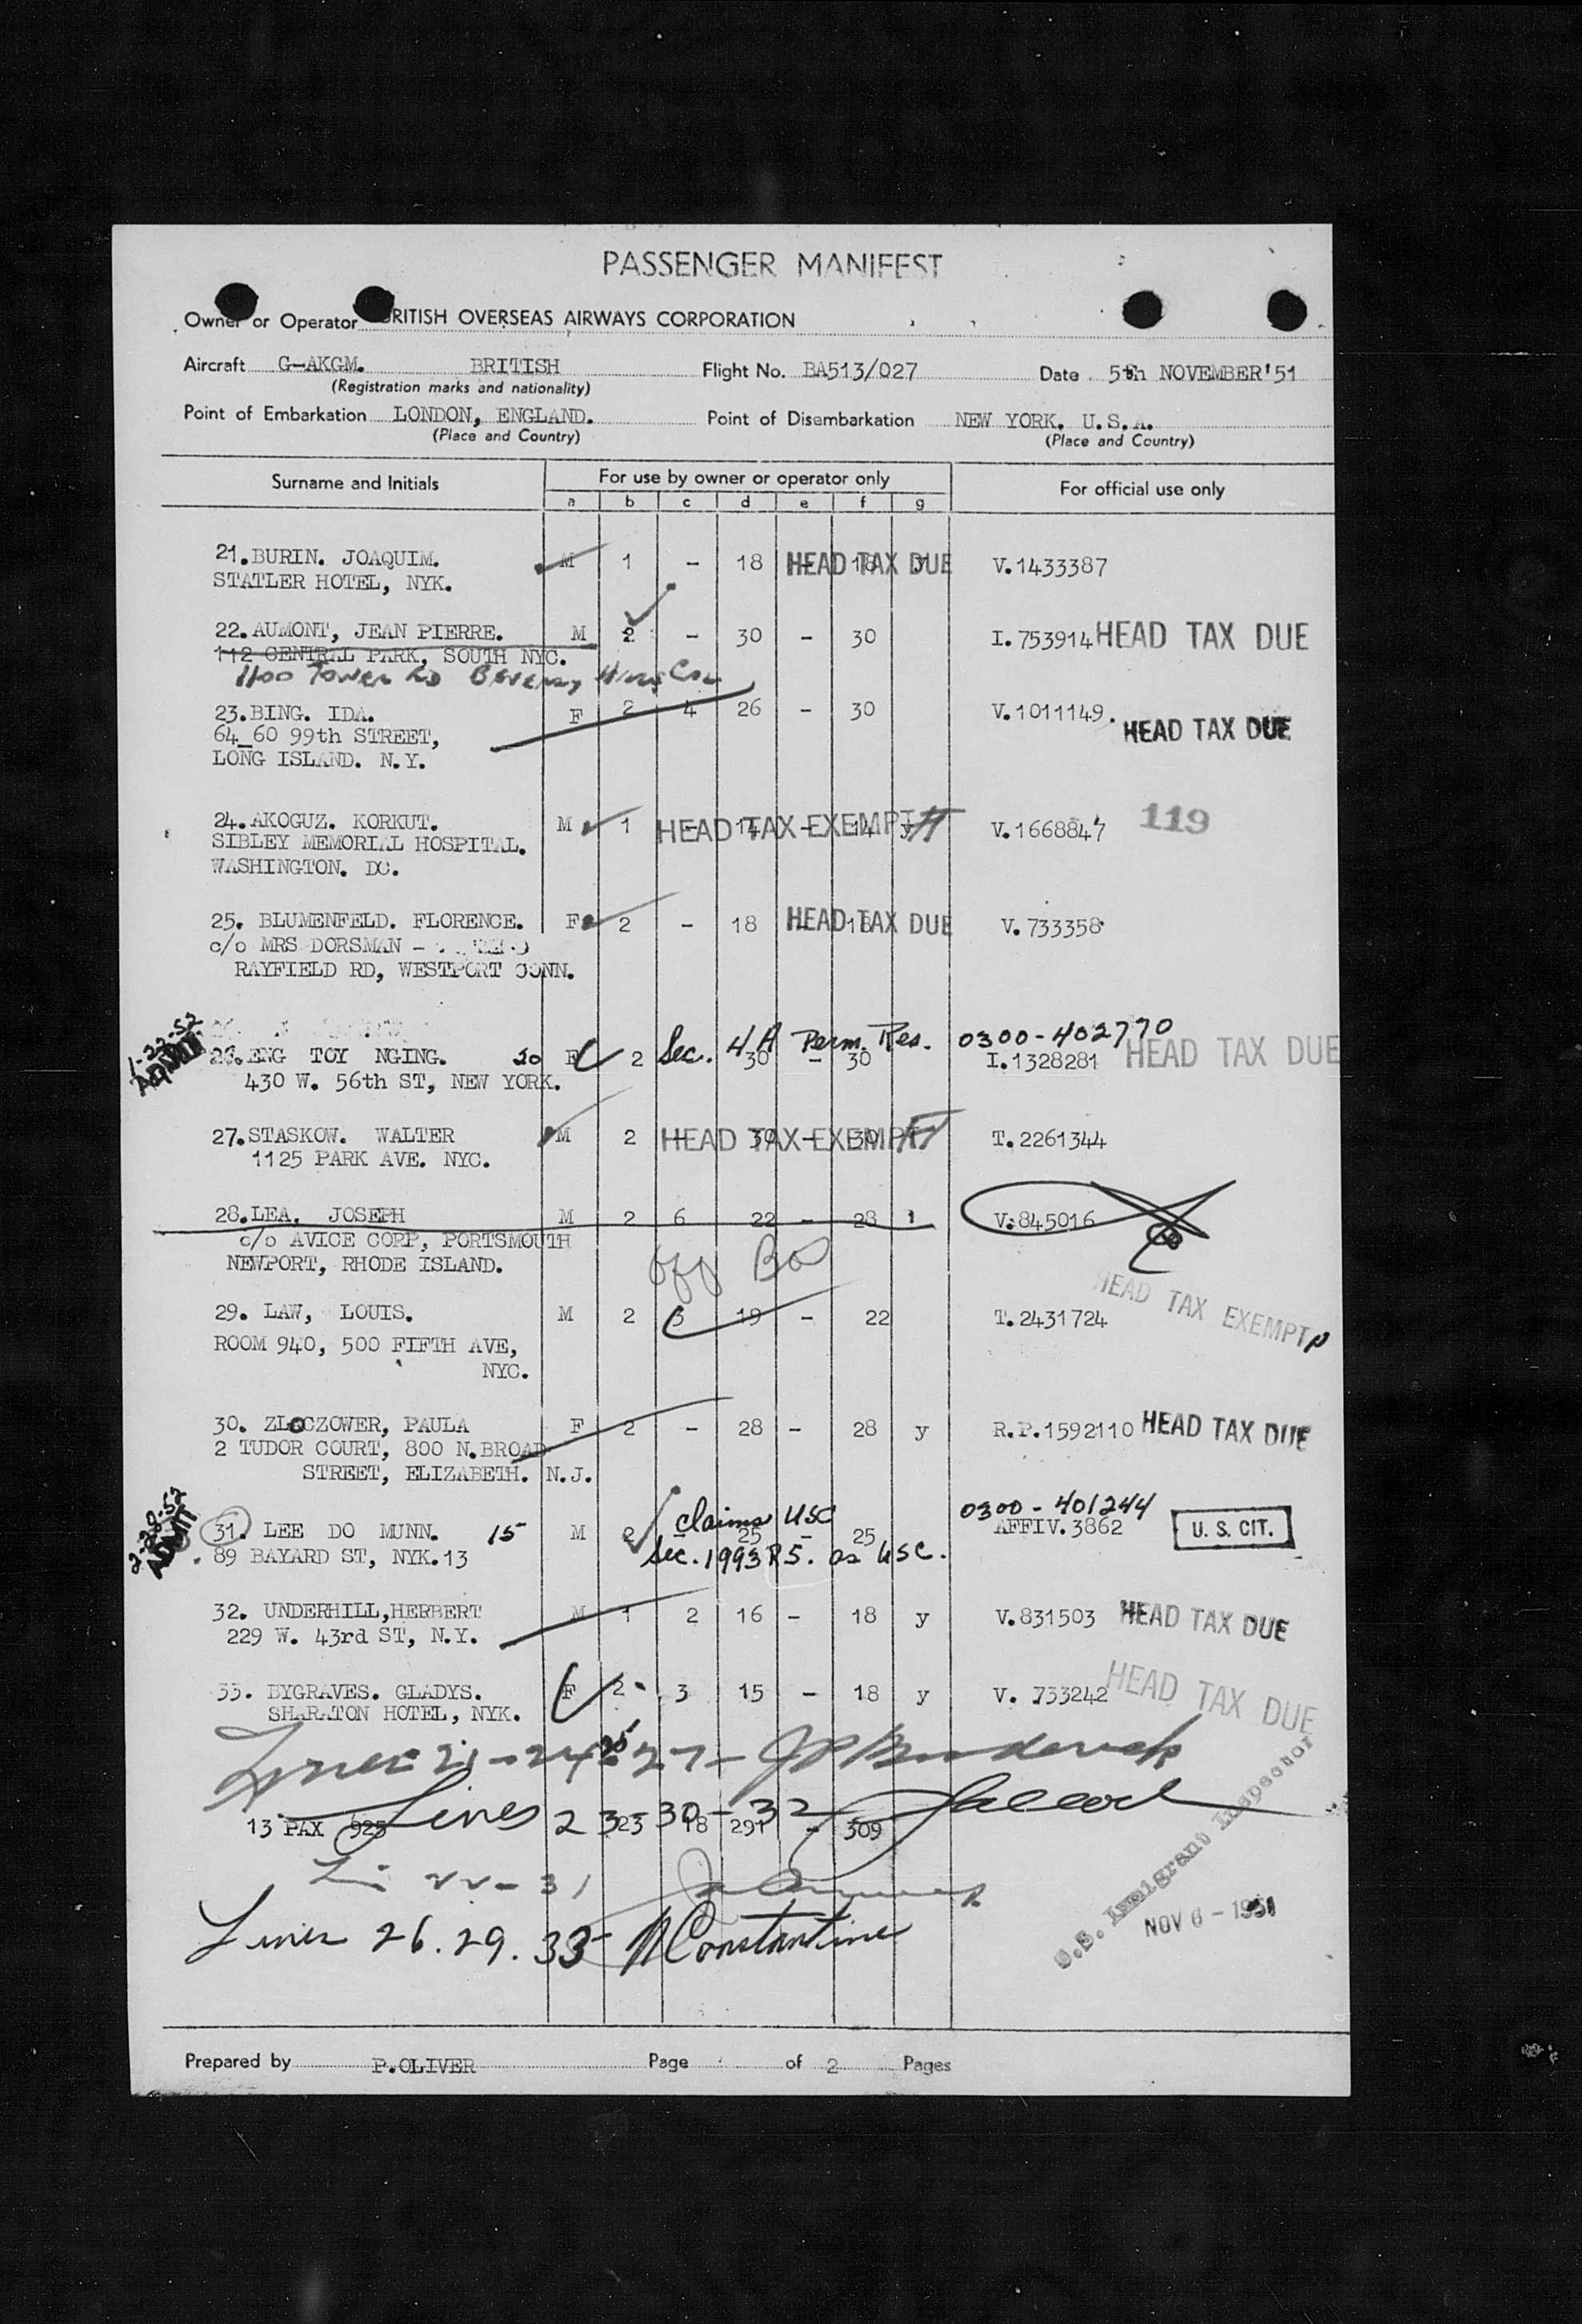 PASSENGER MANIFEST
Owner or Operator BRITISH OVERSEAS AIRWAYS CORPORATION
Aircraft G-AKGM. BRITISH Flight No. BA513/027 Date 5th NOVEMBER'51
(Registration marks and nationality)
Point of Embarkation LONDON, ENGLAND. Point of Disembarkation NEW YORK. U.S.A.
(Place and Country) (Place and Country)
Surname and Initials For use by owner or operator only For official use only
a b c d e f g
21. BURIN. JOAQUIM. M 1 - 18 - 18 HEAD TAX DUE V.1433387
STATLER HOTEL, NYK.
22. AUMONT, JEAN PIERRE. M 2 - 30 - 30 I.753914 HEAD TAX DUE
112 CENTRAL PARK, SOUTH NYC.
1100 Tower Rd Beverly Hills Cal
23. BING. IDA. F 2 4 26 - 30 V.1011149. HEAD TAX DUE
64_60 99th STREET,
LONG ISLAND. N.Y.
24. AKOGUZ. KORKUT. M 1 - 14 - 14 y HEAD TAX EXEMPT V.1668847 119
SIBLEY MEMORIAL HOSPITAL.
WASHINGTON. DC.
25. BLUMENFELD. FLORENCE. F 2 - 18 - 18 HEAD TAX DUE V.733358
c/o MRS DORSMAN -
RAYFIELD RD, WESTPORT CONN.
1-22-52 Sec. 4A Perm. Res. 0300-402770
ADMIT 26. ENG TOY NGING. 20 F 2 30 - 30 I.1328281 HEAD TAX DUE
430 W. 56th ST, NEW YORK.
27. STASKOW. WALTER M 2 - 30 - 30 HEAD TAX EXEMPT T.2261344
1125 PARK AVE. NYC.
28. LEA, JOSEPH M 2 6 22 - 28 V.845016
c/o AVICE CORP, PORTSMOUTH
NEWPORT, RHODE ISLAND.
off Bos
29. LAW, LOUIS. M 2 3 19 - 22 T.2431724 HEAD TAX EXEMPT
ROOM 940, 500 FIFTH AVE,
NYC.
30. ZLOCZOWER, PAULA F 2 - 28 - 28 y R.P.1592110 HEAD TAX DUE
2 TUDOR COURT, 800 N.BROAD
STREET, ELIZABETH. N.J.
2-28-52 claims USC 0300-401244
ADMIT 31. LEE DO MUNN. 15 M 2 - 25 - 25 AFFIV.3862 U. S. CIT.
89 BAYARD ST, NYK.13 Sec. 1993 RS. as USC.
32. UNDERHILL,HERBERT M 1 2 16 - 18 y V.831503 HEAD TAX DUE
229 W. 43rd ST, N.Y.
33. BYGRAVES. GLADYS. F 2 3 15 - 18 y V. 733242 HEAD TAX DUE
SHARATON HOTEL, NYK.
Lines 21-24-25-27-
Lines 23-30-32
13 PAX 925 23 18 291 - 309
22-31
Lines 26. 29. 33- Constantine
U.S. Immigrant Inspector
NOV 6 - 1951
Prepared by P.OLIVER Page of 2 Pages